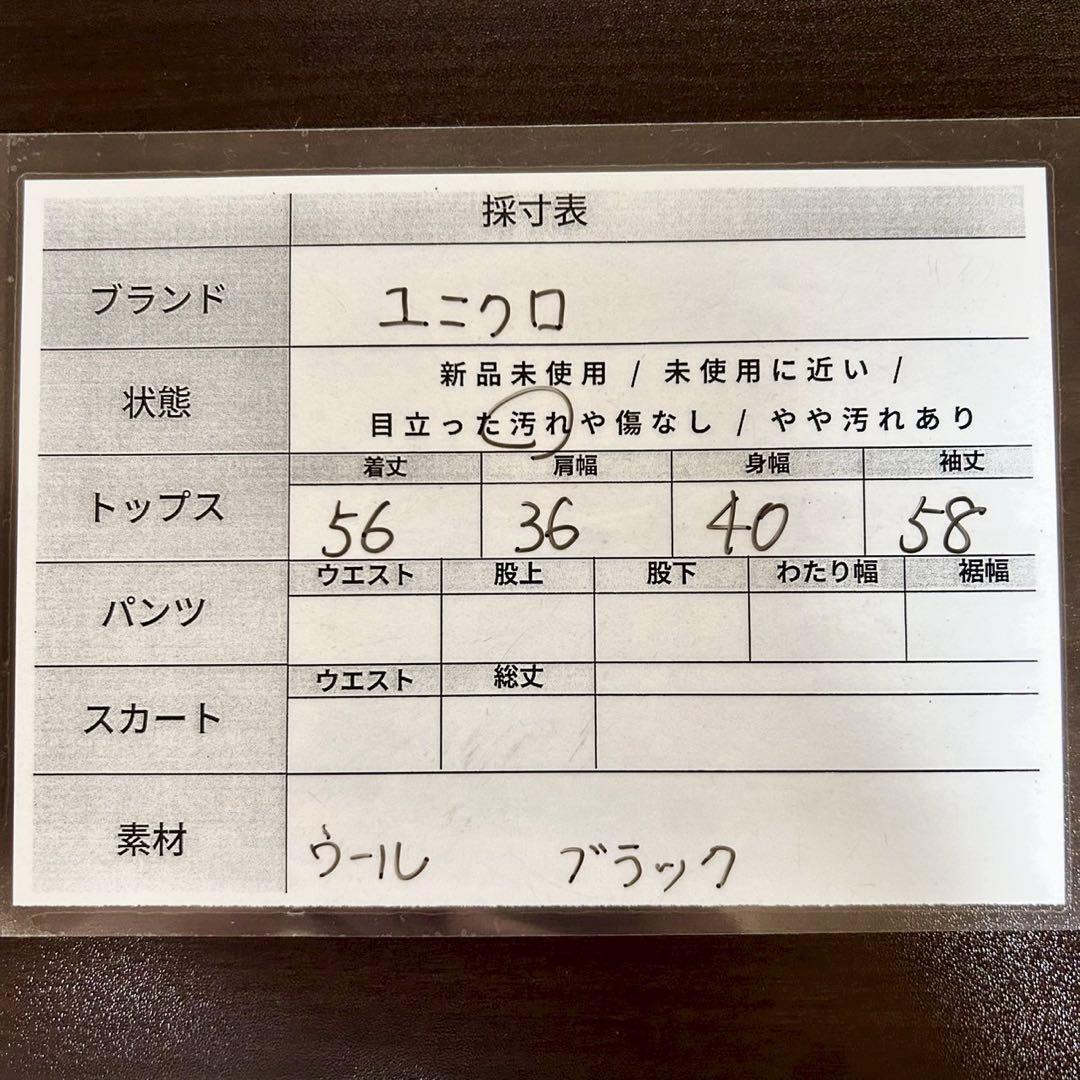 採寸表
ブランド ユニクロ
状態 新品未使用 / 未使用に近い /
目立った汚れや傷なし / やや汚れあり
着丈 肩幅 身幅 袖丈
トップス 56 36 40 58
ウエスト 股上 股下 わたり幅 裾幅
パンツ
ウエスト 総丈
スカート
素材 ウール ブラック